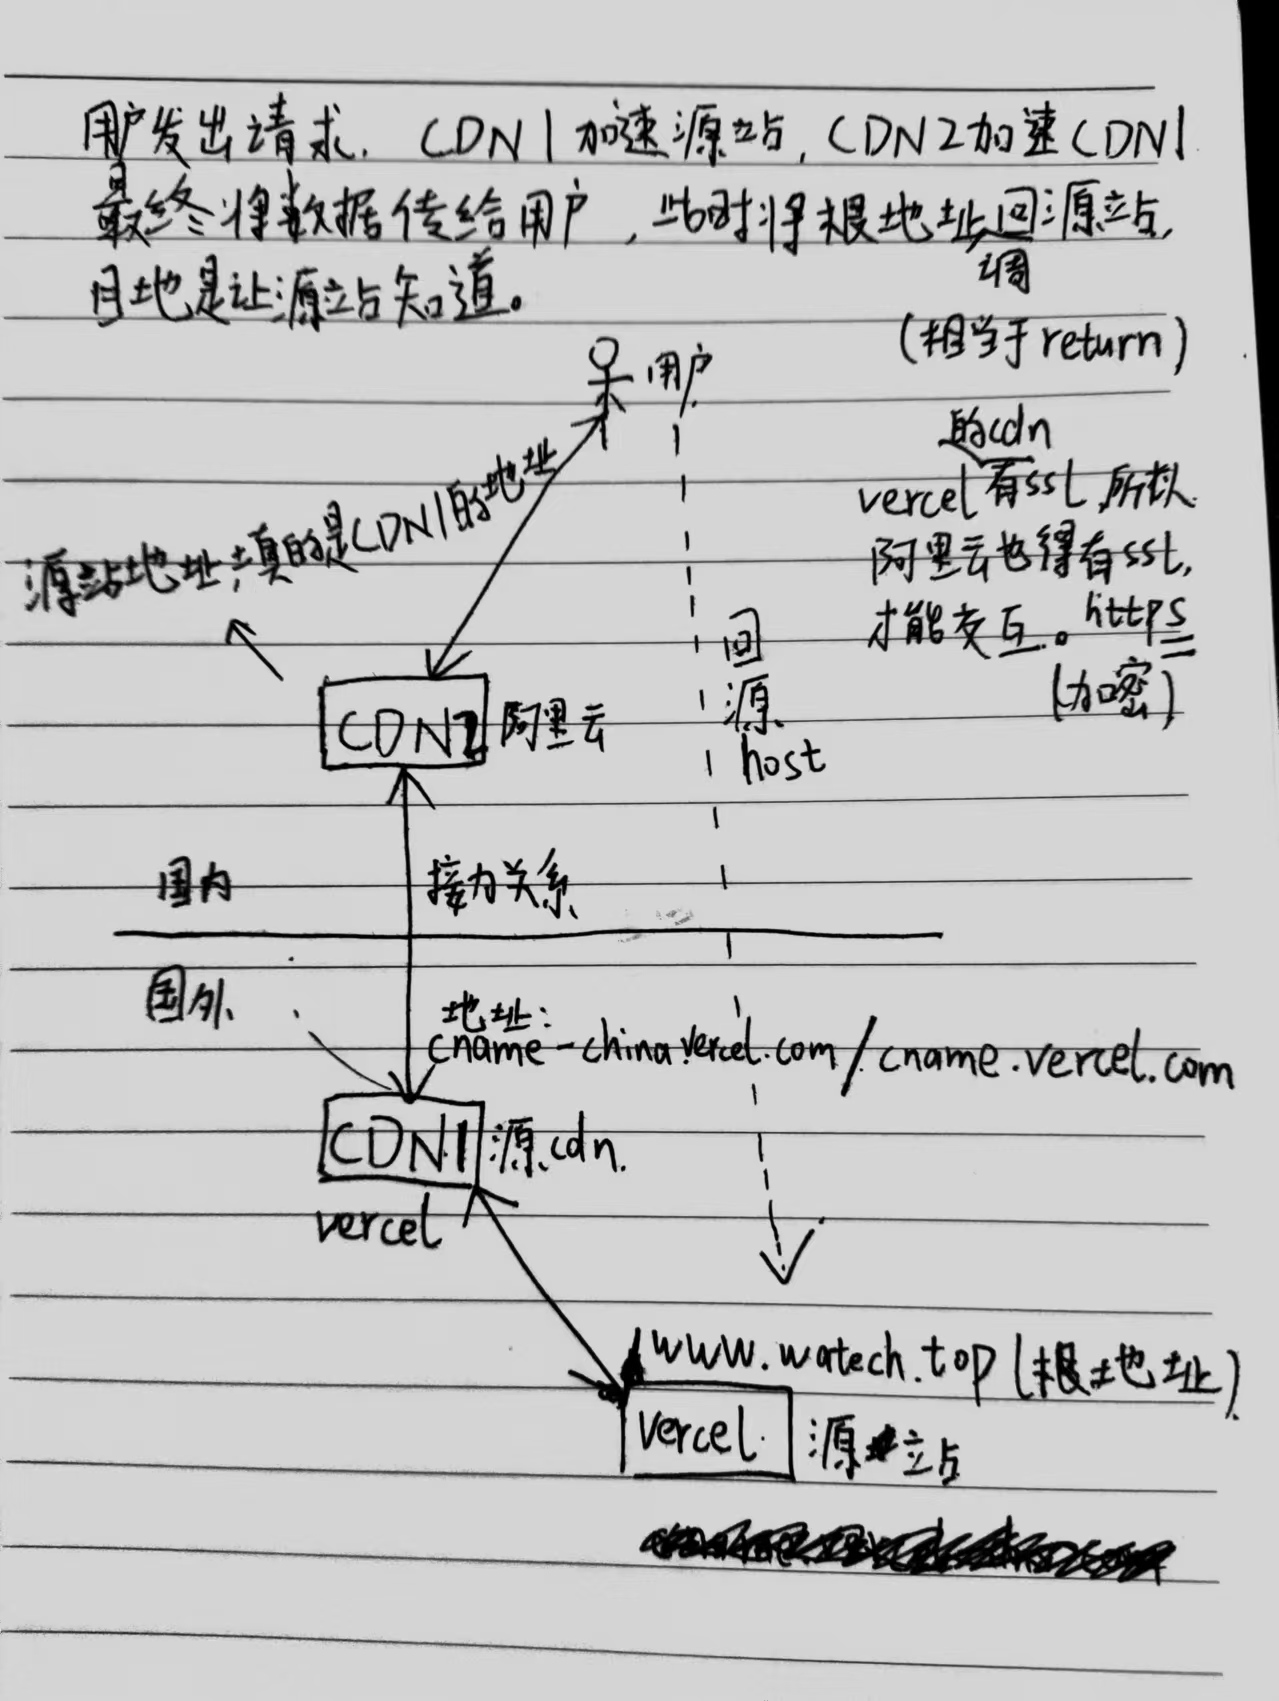 用户发出请求. CDN1加速源站, CDN2加速CDN1
最终将数据传给用户, 此时将根地址回源站,
调
目地是让源站知道。
(相当于return)
用户
的cdn
vercel有ssl,所以
阿里云也得有ssl,
才能交互。https
(加密)
源站地址填的是CDN1的地址
回源host
CDN2 阿里云
国内
接力关系
国外
地址:
cname-china.vercel.com/cname.vercel.com
CDN1 源cdn.
vercel
www.watech.top(根地址)
vercel. 源站